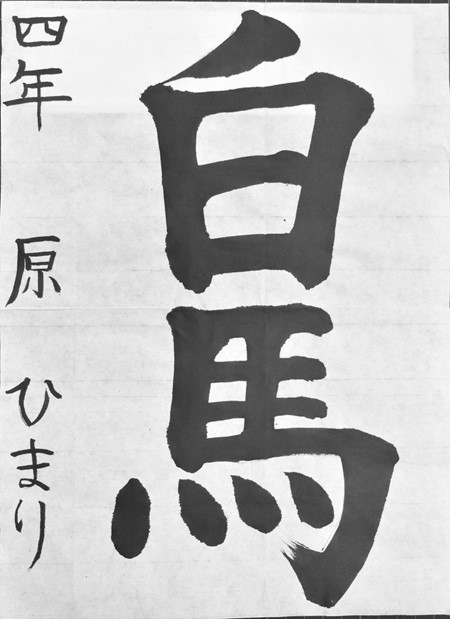 白馬
四年 原 ひまり